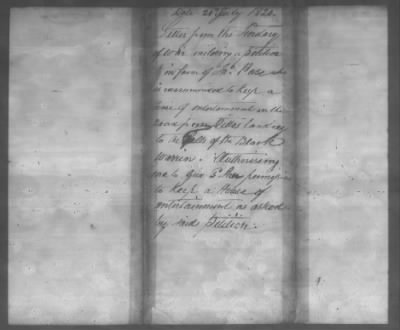 Date 20th July 1824.
Letter from the Secretary
of War enclosing a petition
in favor of Jno. Rose who
is recommended to keep a
house of entertainment on the
road from Landing
to the Falls of the Black
Warrior. Authorising
me to give permission
to keep a House of
entertainment as asked
by said Petition.